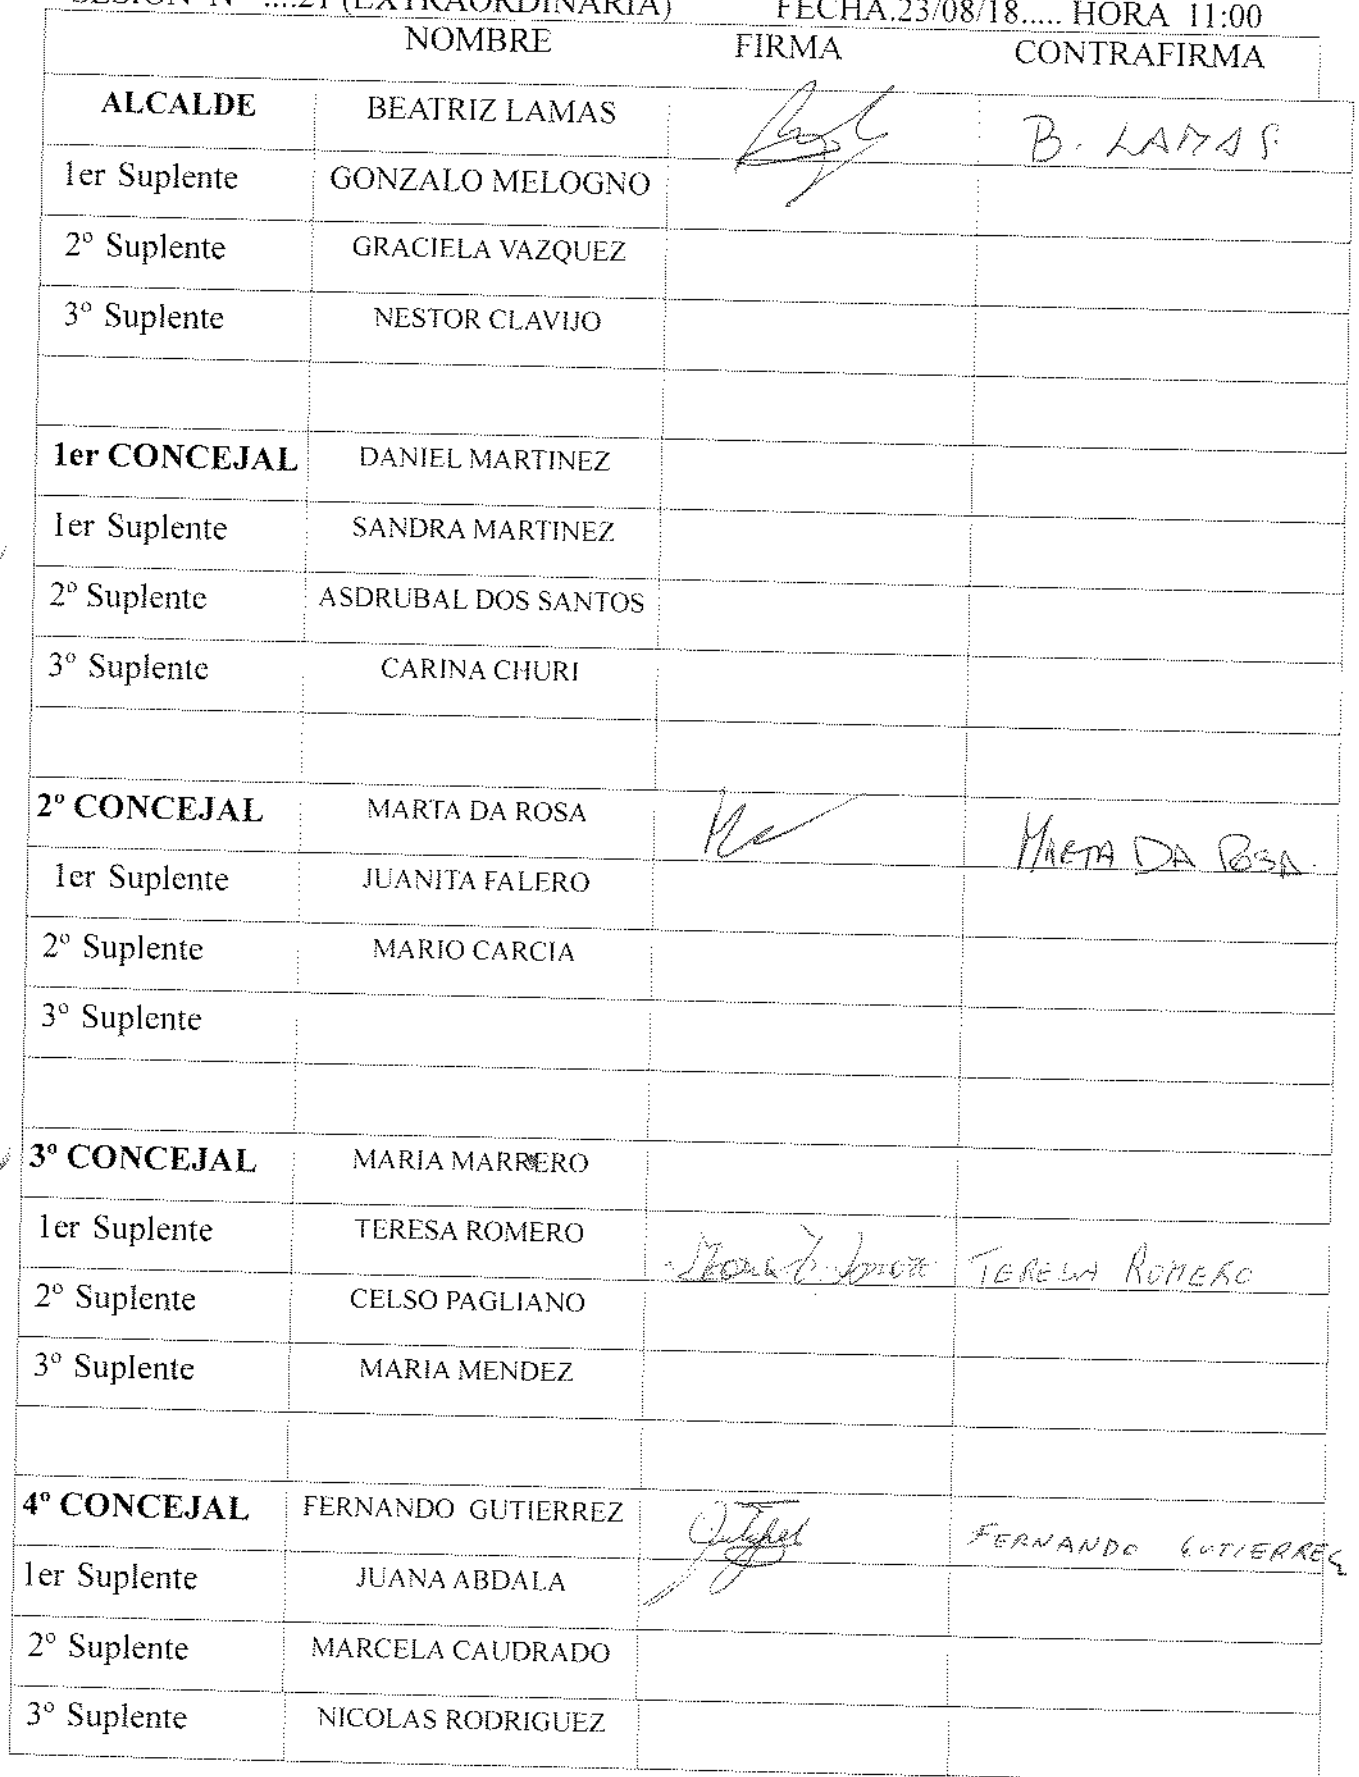 SESION Nº ....21 (EXTRAORDINARIA) FECHA.23/08/18..... HORA 11:00
NOMBRE FIRMA CONTRAFIRMA
ALCALDE BEATRIZ LAMAS B. LAMAS
1er Suplente GONZALO MELOGNO
2º Suplente GRACIELA VAZQUEZ
3º Suplente NESTOR CLAVIJO
1er CONCEJAL DANIEL MARTINEZ
1er Suplente SANDRA MARTINEZ
2º Suplente ASDRUBAL DOS SANTOS
3º Suplente CARINA CHURI
2º CONCEJAL MARTA DA ROSA MARTA DA ROSA.
1er Suplente JUANITA FALERO
2º Suplente MARIO CARCIA
3º Suplente
3º CONCEJAL MARIA MARRERO
1er Suplente TERESA ROMERO TERESA ROMERO
2º Suplente CELSO PAGLIANO
3º Suplente MARIA MENDEZ
4º CONCEJAL FERNANDO GUTIERREZ FERNANDO GUTIERREZ
1er Suplente JUANA ABDALA
2º Suplente MARCELA CAUDRADO
3º Suplente NICOLAS RODRIGUEZ